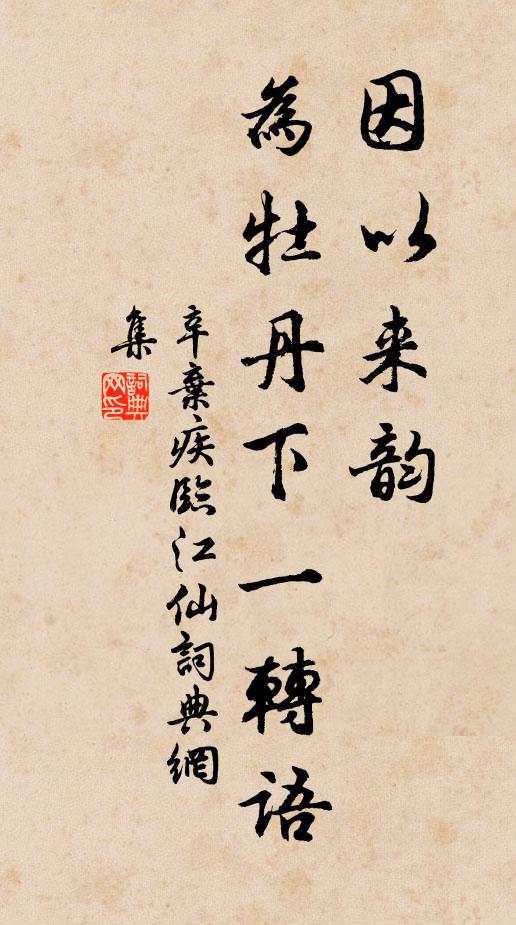 因以来韵
為牡丹下一轉語
辛棄疾臨江仙詞典網
集
詞典網印